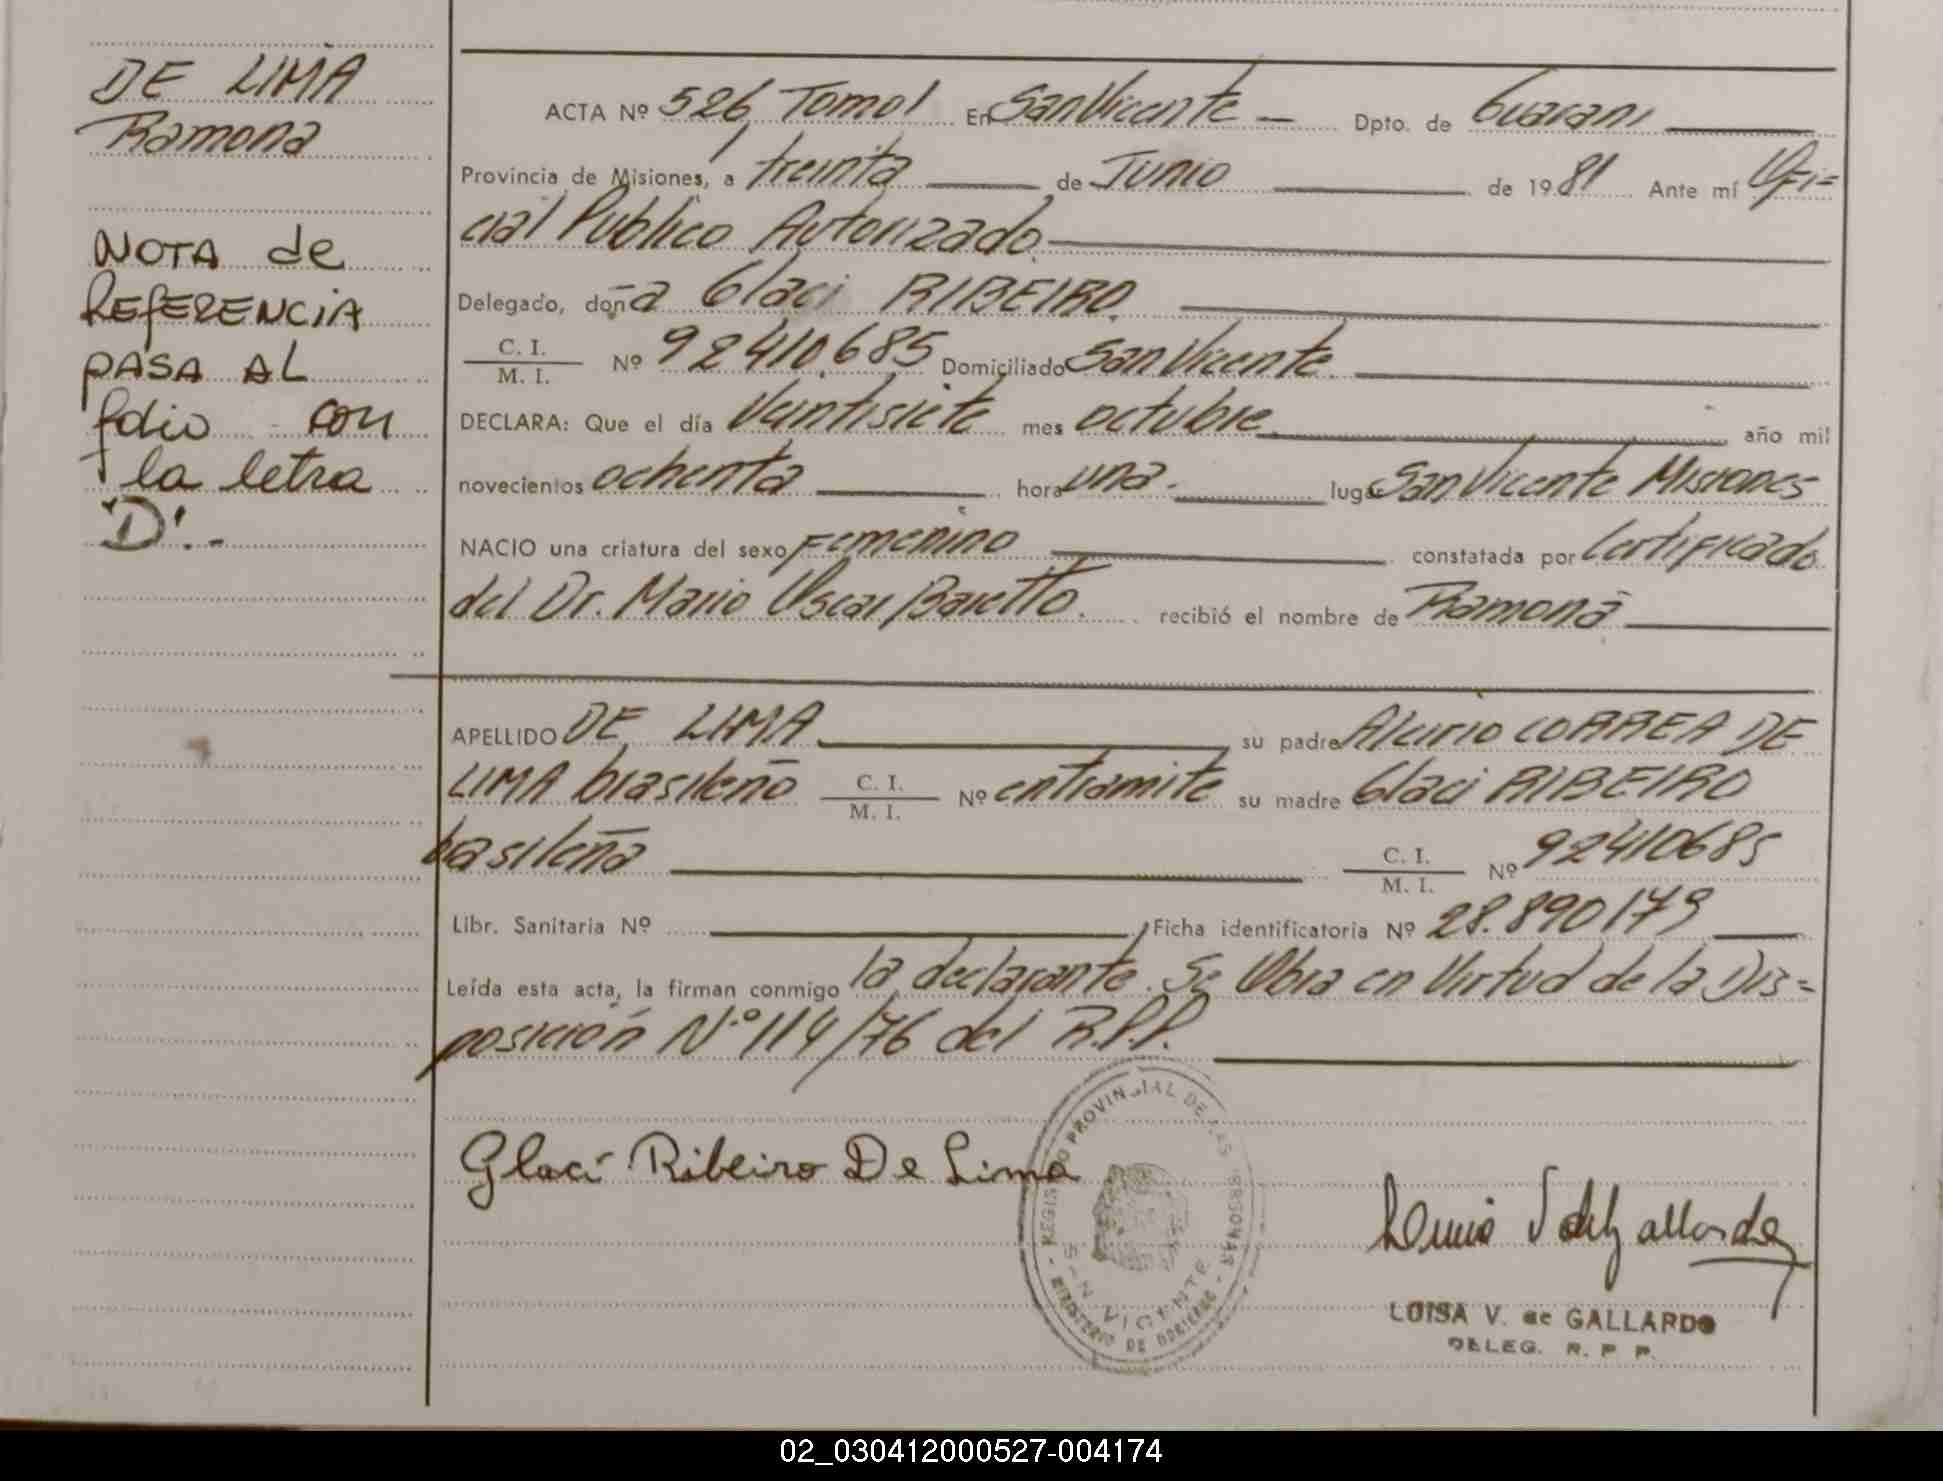 DE LIMA
Ramona
NOTA de
REFERENCIA
PASA AL
folio con
la letra
"D".-
ACTA Nº 526 Tomo I En San Vicente — Dpto. de Guarani
Provincia de Misiones, a treinta de Junio de 1981 Ante mí Ofi=
cial Público Autorizado.
Delegado, doña Glaci RIBEIRO.
C. I.
M. I.
Nº 92410.685 Domiciliado San Vicente
DECLARA: Que el día Veintisiete mes octubre año mil
novecientos ochenta hora una. lugar San Vicente Misiones
NACIO una criatura del sexo Femenino constatada por Certificado
del Dr. Mario Oscar Baretto. recibió el nombre de Ramona
APELLIDO DE LIMA su padre CORREA DE
LIMA brasileño C. I. M. I. Nº entramite su madre Glaci RIBEIRO
basileña C. I. M. I. Nº 92410685
Libr. Sanitaria Nº Ficha identificatoria Nº 28.890179
Leída esta acta, la firman conmigo la declarante. Se Obra en Virtud de la Dis=
posición N.º 114/76 del R.P.P.
Glaci Ribeiro De Lima
REGISTRO PROVINCIAL DE LAS PERSONAS
SAN VICENTE
- MINISTERIO DE GOBIERNO -
LUISA V. de GALLARDO
DELEG. R. P. P.
02_030412000527-004174